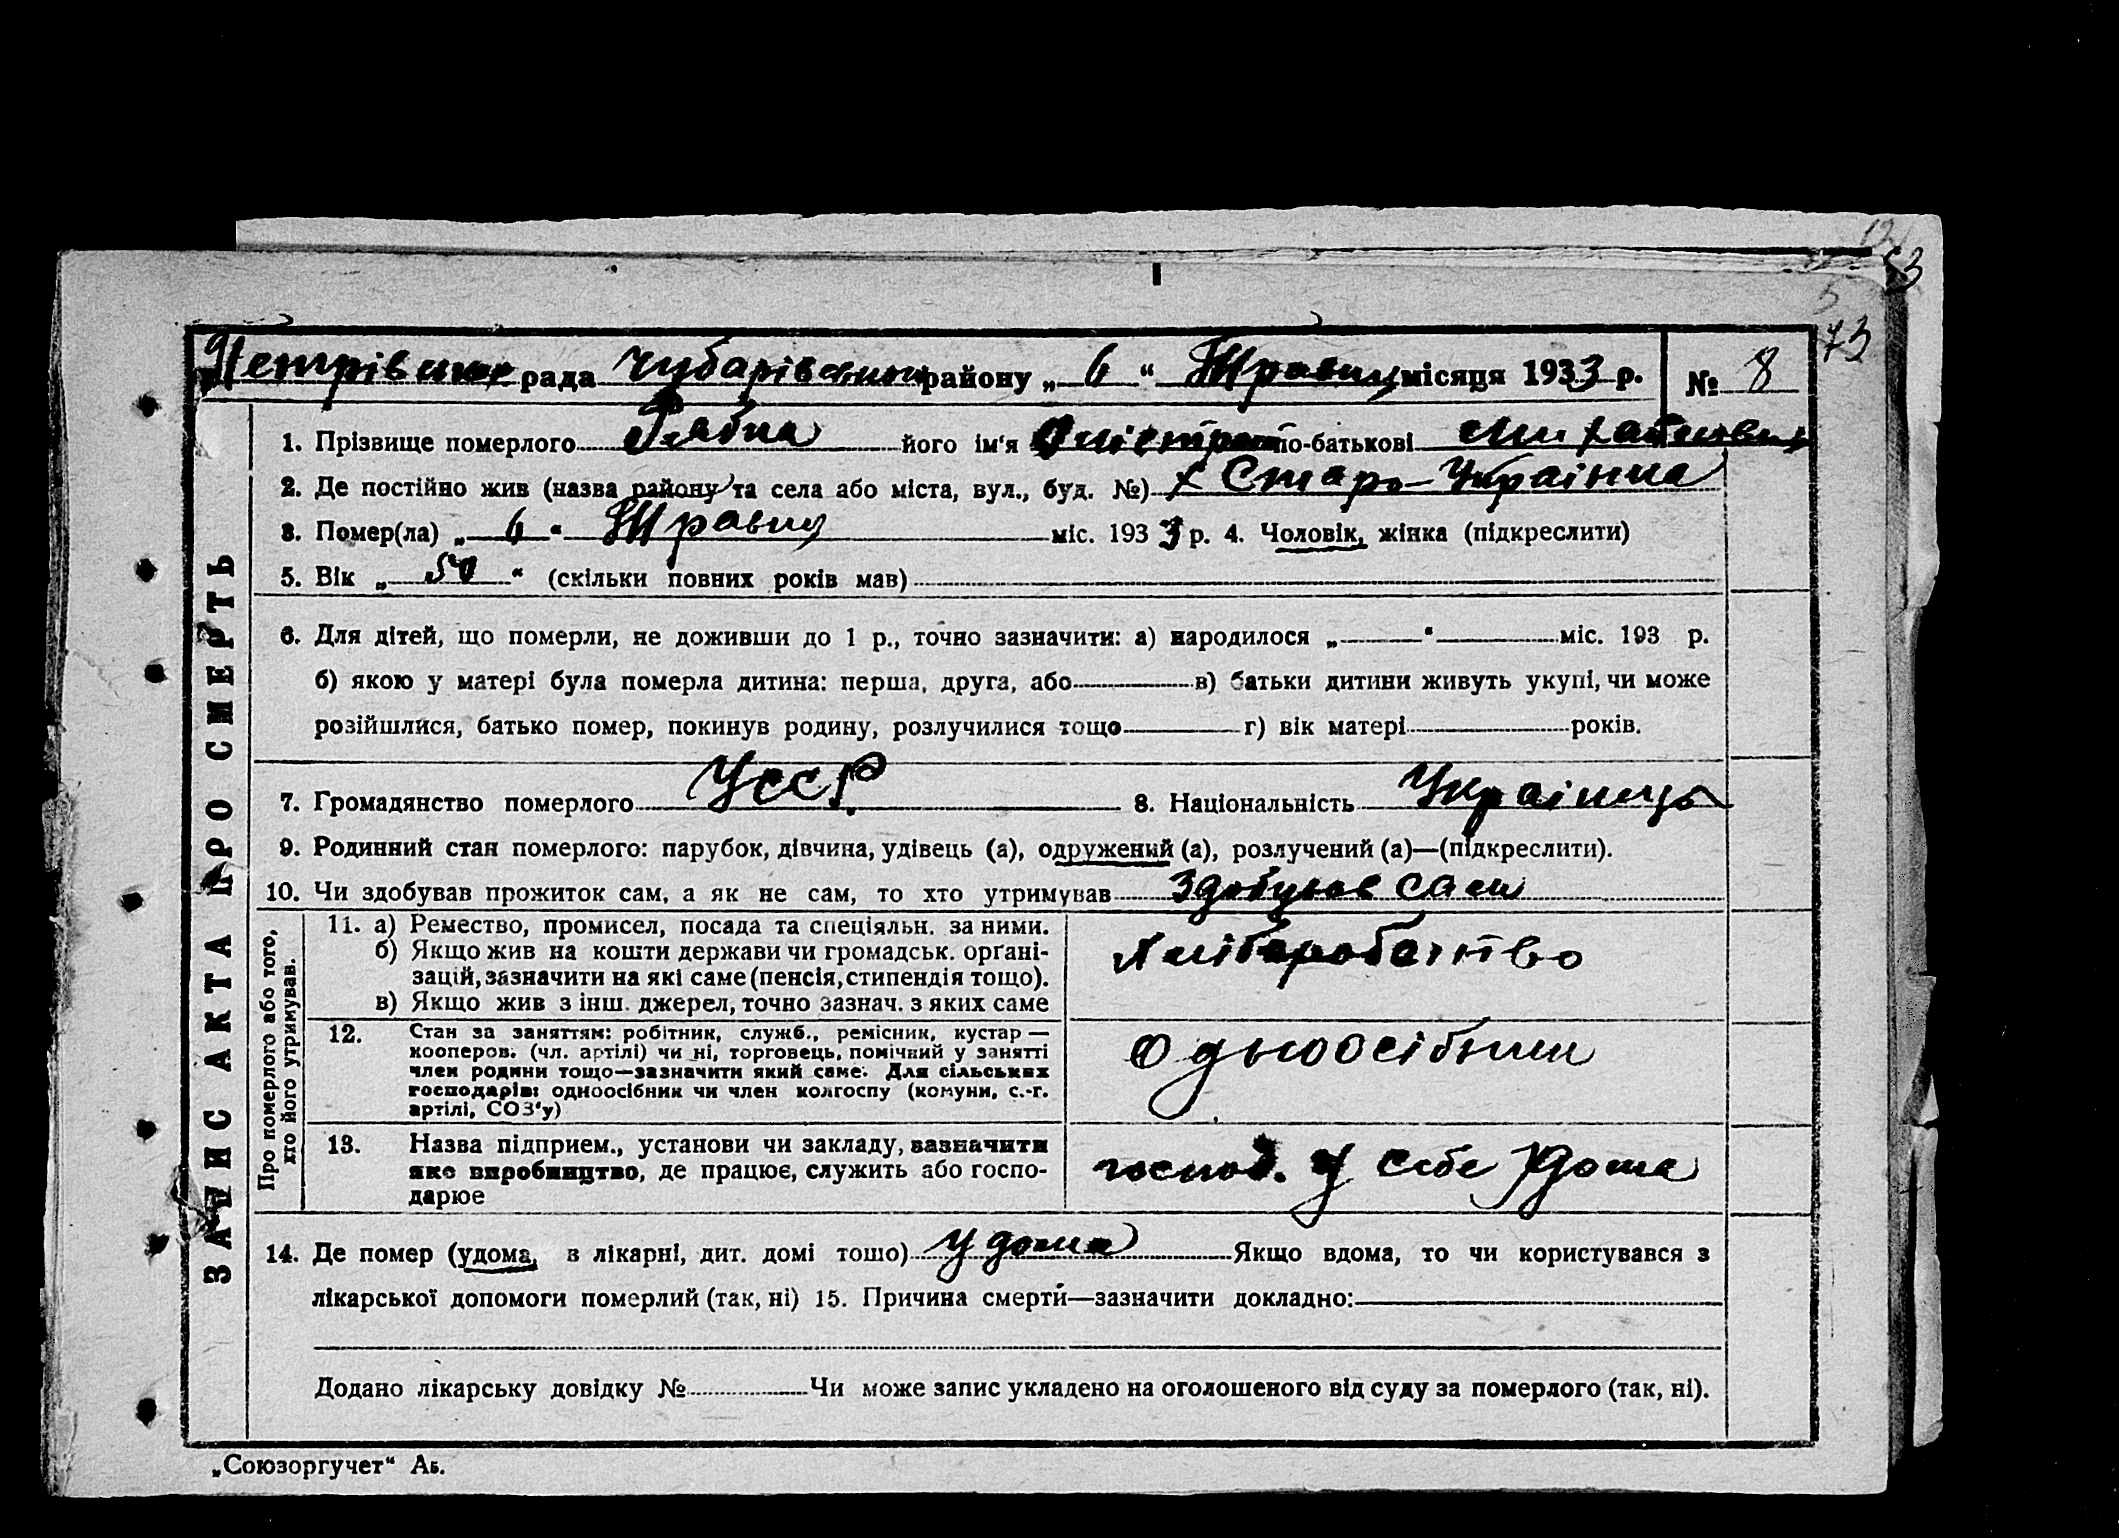 53
73
Петрівська рада Чубарівського району „ 6 “ Травня місяця 1933 р. № 8
ЗАПИС АКТА ПРО СМЕРТЬ
1. Прізвище померлого Рябка його ім'я по-батькові Михайлович
2. Де постійно жив (назва району та села або міста, вул., буд. №) х Старо-Українка
3. Помер(ла) „ 6 “ Травня міс. 1933 р. 4. Чоловік, жінка (підкреслити)
5. Вік „ 50 “ (скільки повних років мав)
6. Для дітей, що померли, не доживши до 1 р., точно зазначити: а) народилося „ “ міс. 193 р.
б) якою у матері була померла дитина: перша, друга, або в) батьки дитини живуть укупі, чи може
розійшлися, батько помер, покинув родину, розлучилися тощо г) вік матері років.
7. Громадянство померлого УССР. 8. Національність Українець
9. Родинний стан померлого: парубок, дівчина, удівець (а), одружений (а), розлучений (а)—(підкреслити).
10. Чи здобував прожиток сам, а як не сам, то хто утримував Здобував сам
Про померлого або того,
хто його утримував.
11. а) Ремество, промисел, посада та спеціяльн. за ними.
б) Якщо жив на кошти держави чи громадськ. орґані-
зацій, зазначити на які саме (пенсія, стипендія тощо).
в) Якщо жив з інш. джерел, точно зазнач. з яких саме
Хліборобство
12. Стан за заняттям: робітник, служб., ремісник, кустар —
кооперов. (чл. артілі) чи ні, торговець, помічний у занятті
член родини тощо—зазначити який саме. Для сільських
господарів: одноосібник чи член колгоспу (комуни, с.-г.
артілі, СОЗ'у)
Одноосібник
13. Назва підприєм., установи чи закладу, зазначити
яке виробництво, де працює, служить або госпо-
дарює
господ. у себе удома
14. Де помер (удома, в лікарні, дит. домі тощо) удома Якщо вдома, то чи користувався з
лікарської допомоги померлий (так, ні) 15. Причина смерти—зазначити докладно:
Додано лікарську довідку № Чи може запис укладено на оголошеного від суду за померлого (так, ні).
„Союзоргучет“ Аь.